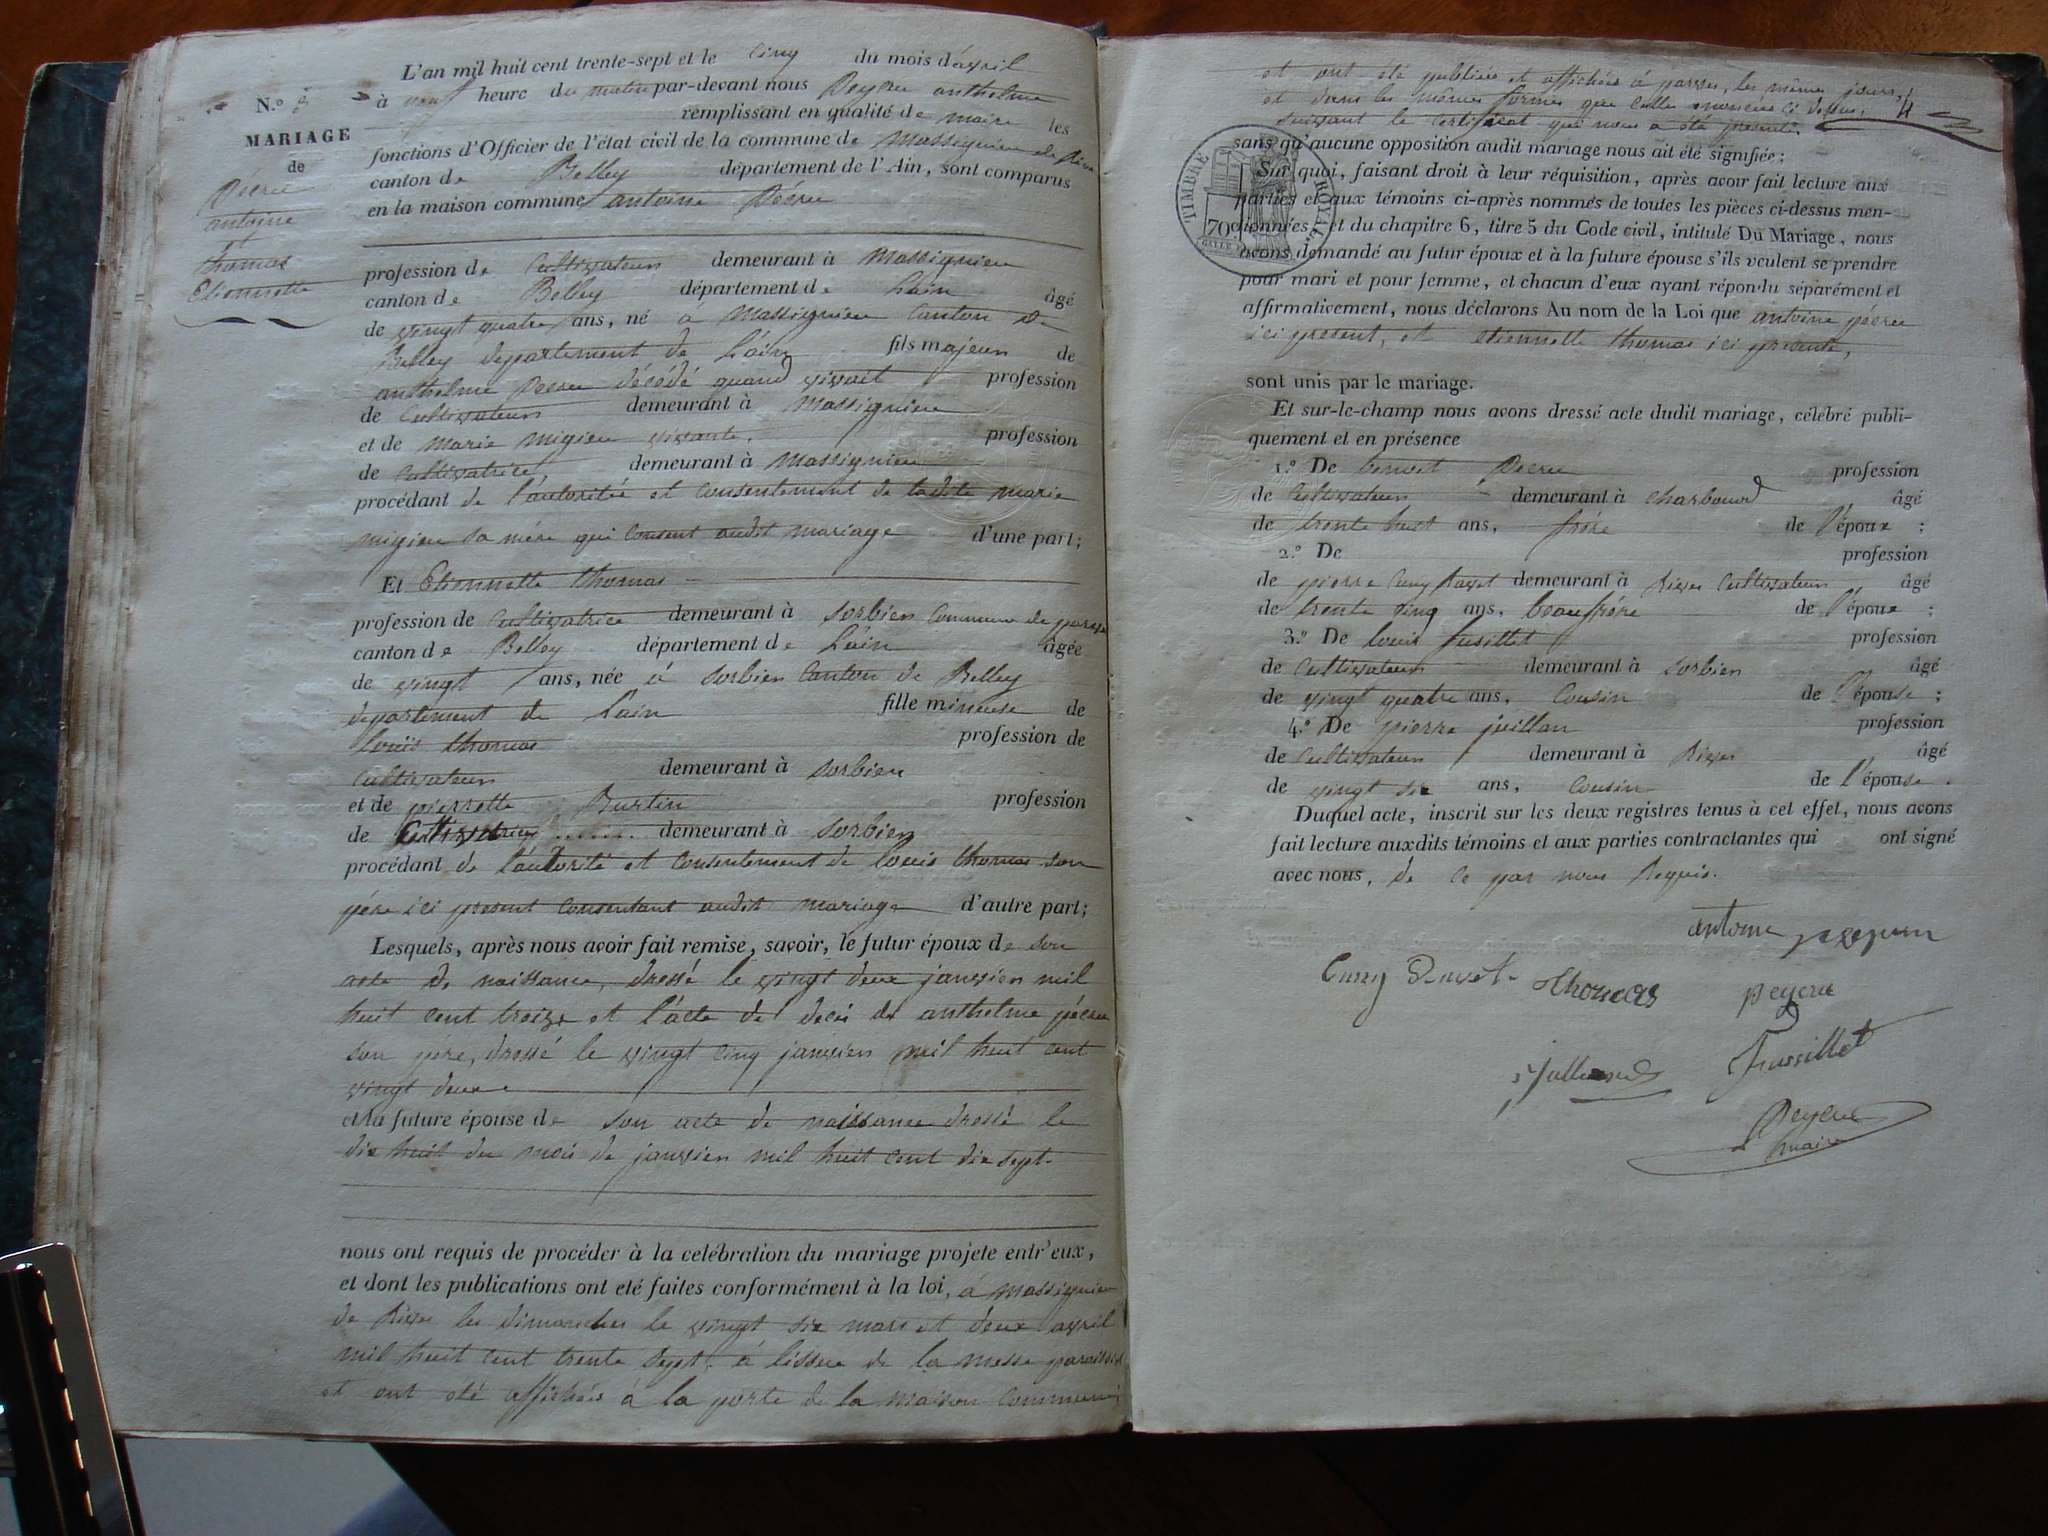 L'an mil huit cent trente-sept et le cinq du mois d'avril
à neuf heure du matin par-devant nous Peycru anthelme
remplissant en qualité de maire les
fonctions d'Officier de l'état civil de la commune de Massignieu de Rives
canton de Belley département de l'Ain, sont comparus
en la maison commune antoine Pécru
N.º 3
MARIAGE
de
Pécru
antoine
thomas
Etiennette
profession de Cultivateur demeurant à Massignieu
canton de Belley département de Lain âgé
de vingt quatre ans, né a Massignieu Canton de
Belley departement de L'ain fils majeur de
anthelme Pecru décédé quand vivait profession
de Cultivateur demeurant à Massignieu
et de marie migieu vivante, profession
de Cultivatrice, demeurant à Massignieu
procédant de l'autoritée et consentement de ladite marie
migieu sa mére qui consent audit mariage d'une part;
Et Etiennette thomas
profession de Cultivatrice demeurant à sorbien Commune de parves
canton de Belley département de Lain âgée
de vingt ans, née á sorbien Canton de Belley
departement de Lain fille mineuse de
Louis thomas profession de
cultivateur demeurant à sorbien
et de pierrette Burtin profession
de Cultivatrice demeurant à sorbien
procédant de l'autorité et consentement de louis thomas son
pére ici present consentant audit mariage d'autre part;
Lesquels, après nous avoir fait remise, savoir, le futur époux de son
acte de naissance, dressé le vingt deux janvier mil
huit cent treize et l'acte de décés de anthelme pécru
son pere, dressé le vingt cinq janvier mil huit cent
vingt deux.
et la future épouse de son acte de naissance dressé le
dix huit du mois de janvier mil huit cent dix sept.
nous ont requis de procéder à la celébration du mariage projete entr'eux,
et dont les publications ont eté faites conformément à la loi, á Massignieu
de Rives les dimanches le vingt six mars et deux avril
mil huit cent trente sept, á lissue de la messe paroissial
et ont été affichées á la porte de la maison commune
et ont été publiées et affichées á parves, les mêmes jours,
et dans les mêmes formes que celles enoncées ci dessus,
suivant le certificat qui nous a été présenté.
4
TIMBRE ROYAL
70c
sans qu'aucune opposition audit mariage nous ait été signifiée;
Sur quoi, faisant droit à leur réquisition, après avoir fait lecture aux
parties et aux témoins ci-après nommés de toutes les pièces ci-dessus men-
tionnées, et du chapitre 6, titre 5 du Code civil, intitulé Du Mariage, nous
avons demandé au futur époux et à la future épouse s'ils veulent se prendre
pour mari et pour femme, et chacun d'eux ayant répondu séparément et
affirmativement, nous déclarons Au nom de la Loi que antoine pécru
ici present, et etiennette thomas ici presente,
sont unis par le mariage.
Et sur-le-champ nous avons dressé acte dudit mariage, célébré publi-
quement et en présence
1.º De benoit Pecru profession
de Cultivateur demeurant à Charbonod âgé
de trente huit ans, frére de l'époux ;
2.º De profession
de pierre Cuny Ravet demeurant à Rives Cultivateur âgé
de trente cinq ans, beaufrére de l'époux ;
3.º De louis fusillet profession
de Cultivateur demeurant à sorbien âgé
de vingt quatre ans, Cousin de l'épouse ;
4.º De pierre juillan profession
de Cultivateur demeurant à Rives âgé
de vingt six ans, Cousin de l'épouse.
Duquel acte, inscrit sur les deux registres tenus à cet effet, nous avons
fait lecture auxdits témoins et aux parties contractantes qui ont signé
avec nous, de ce par nous Requis.
antoine
Thomas Peycru
Fussillet
Peycru
maire